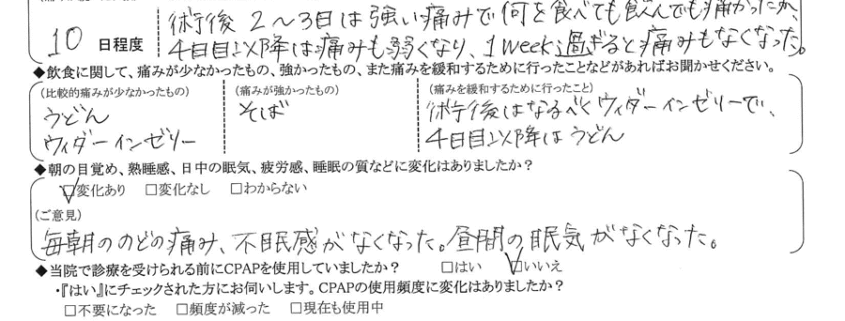 術後2〜3日は強い痛みで何を食べても飲んでも痛かったが、
10 日程度 4日目以降は痛みも弱くなり、1week過ぎると痛みもなくなった。
◆飲食に関して、痛みが少なかったもの、強かったもの、また痛みを緩和するために行ったことなどがあればお聞かせください。
(比較的痛みが少なかったもの) (痛みが強かったもの) (痛みを緩和するために行ったこと)
うどん そば 術後はなるべくウィダーインゼリーで、
ウィダーインゼリー 4日目以降はうどん
◆朝の目覚め、熟睡感、日中の眠気、疲労感、睡眠の質などに変化はありましたか?
☑変化あり □変化なし □わからない
(ご意見)
毎朝ののどの痛み、不眠感がなくなった。昼間の眠気がなくなった。
◆当院で診療を受けられる前にCPAPを使用していましたか? □はい ☑いいえ
・『はい』にチェックされた方にお伺いします。CPAPの使用頻度に変化はありましたか?
□不要になった □頻度が減った □現在も使用中